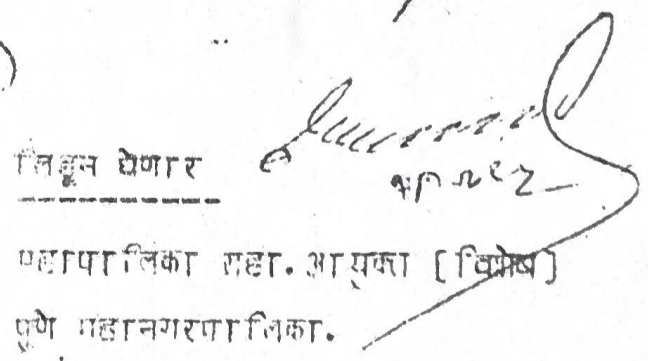 लिहून घेणार
महापालिका सहा. आयुक्त [विशेष]
पुणे महानगरपालिका.